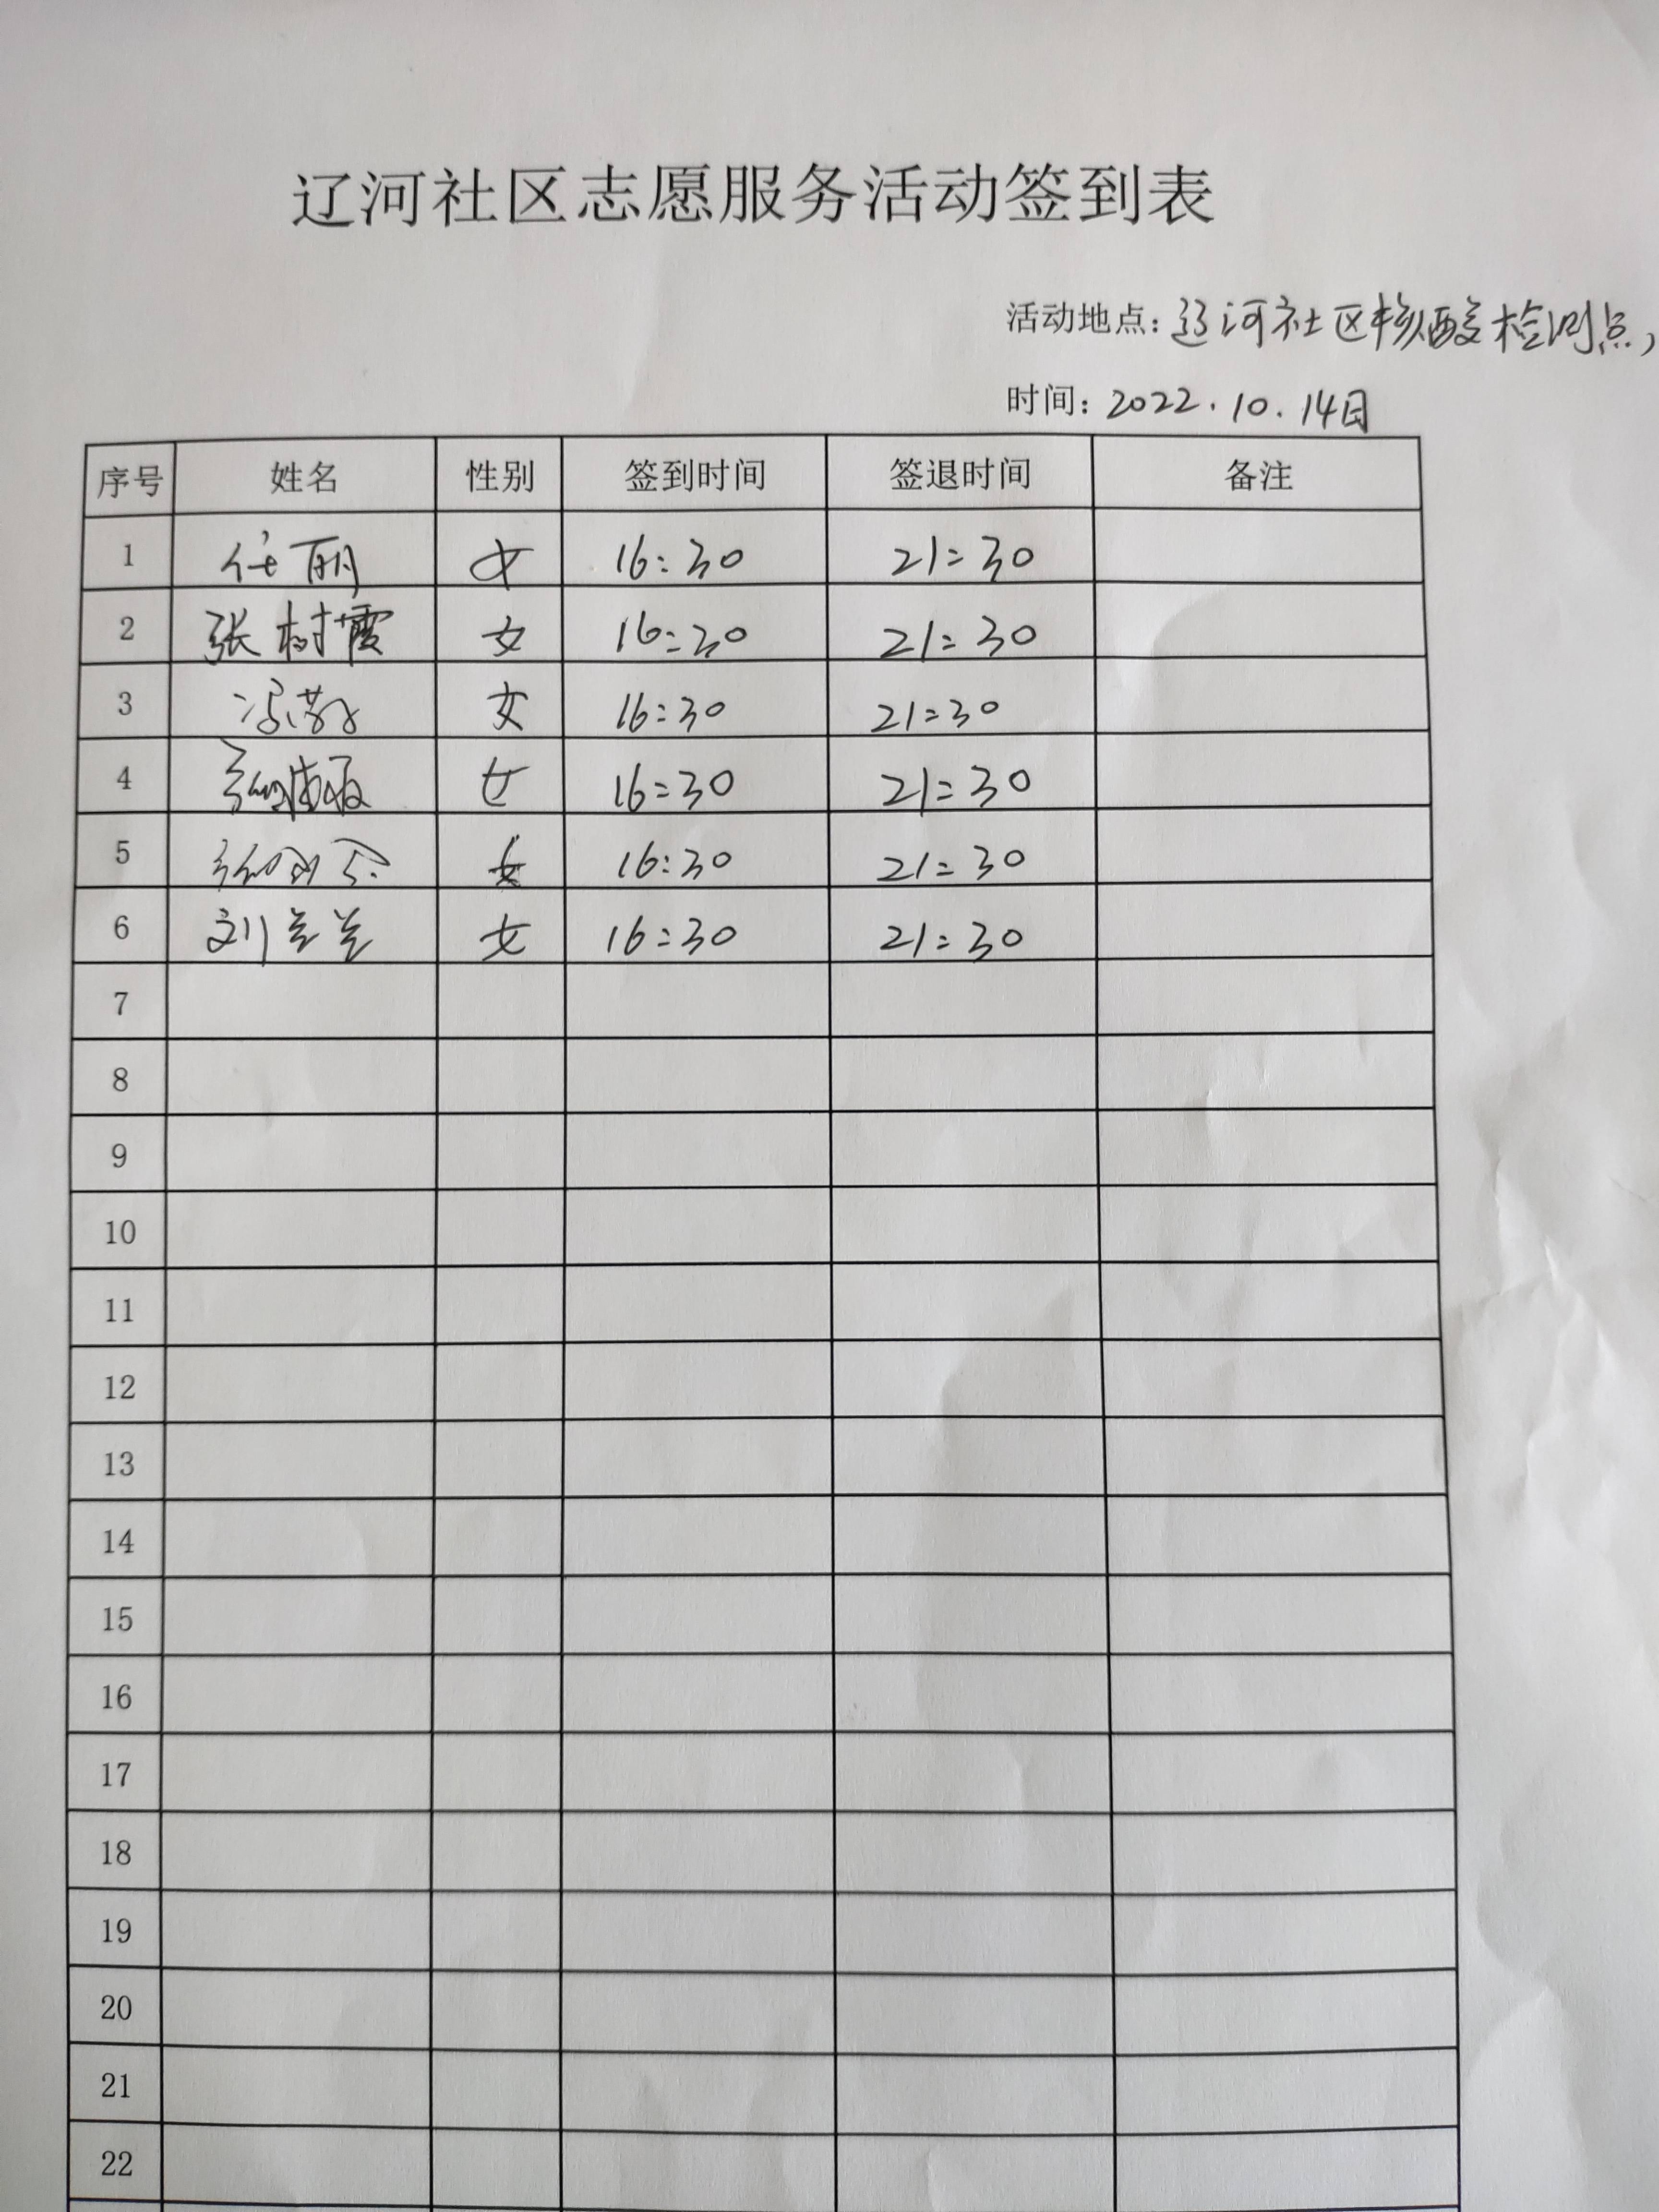 辽河社区志愿服务活动签到表
活动地点：辽河社区核酸检测点，
时间：2022.10.14日
序号 姓名 性别 签到时间 签退时间 备注
1 任丽 女 16:30 21:30
2 张树霞 女 16:30 21:30
3 女 16:30 21:30
4 女 16:30 21:30
5 女 16:30 21:30
6 刘兰兰 女 16:30 21:30
7
8
9
10
11
12
13
14
15
16
17
18
19
20
21
22